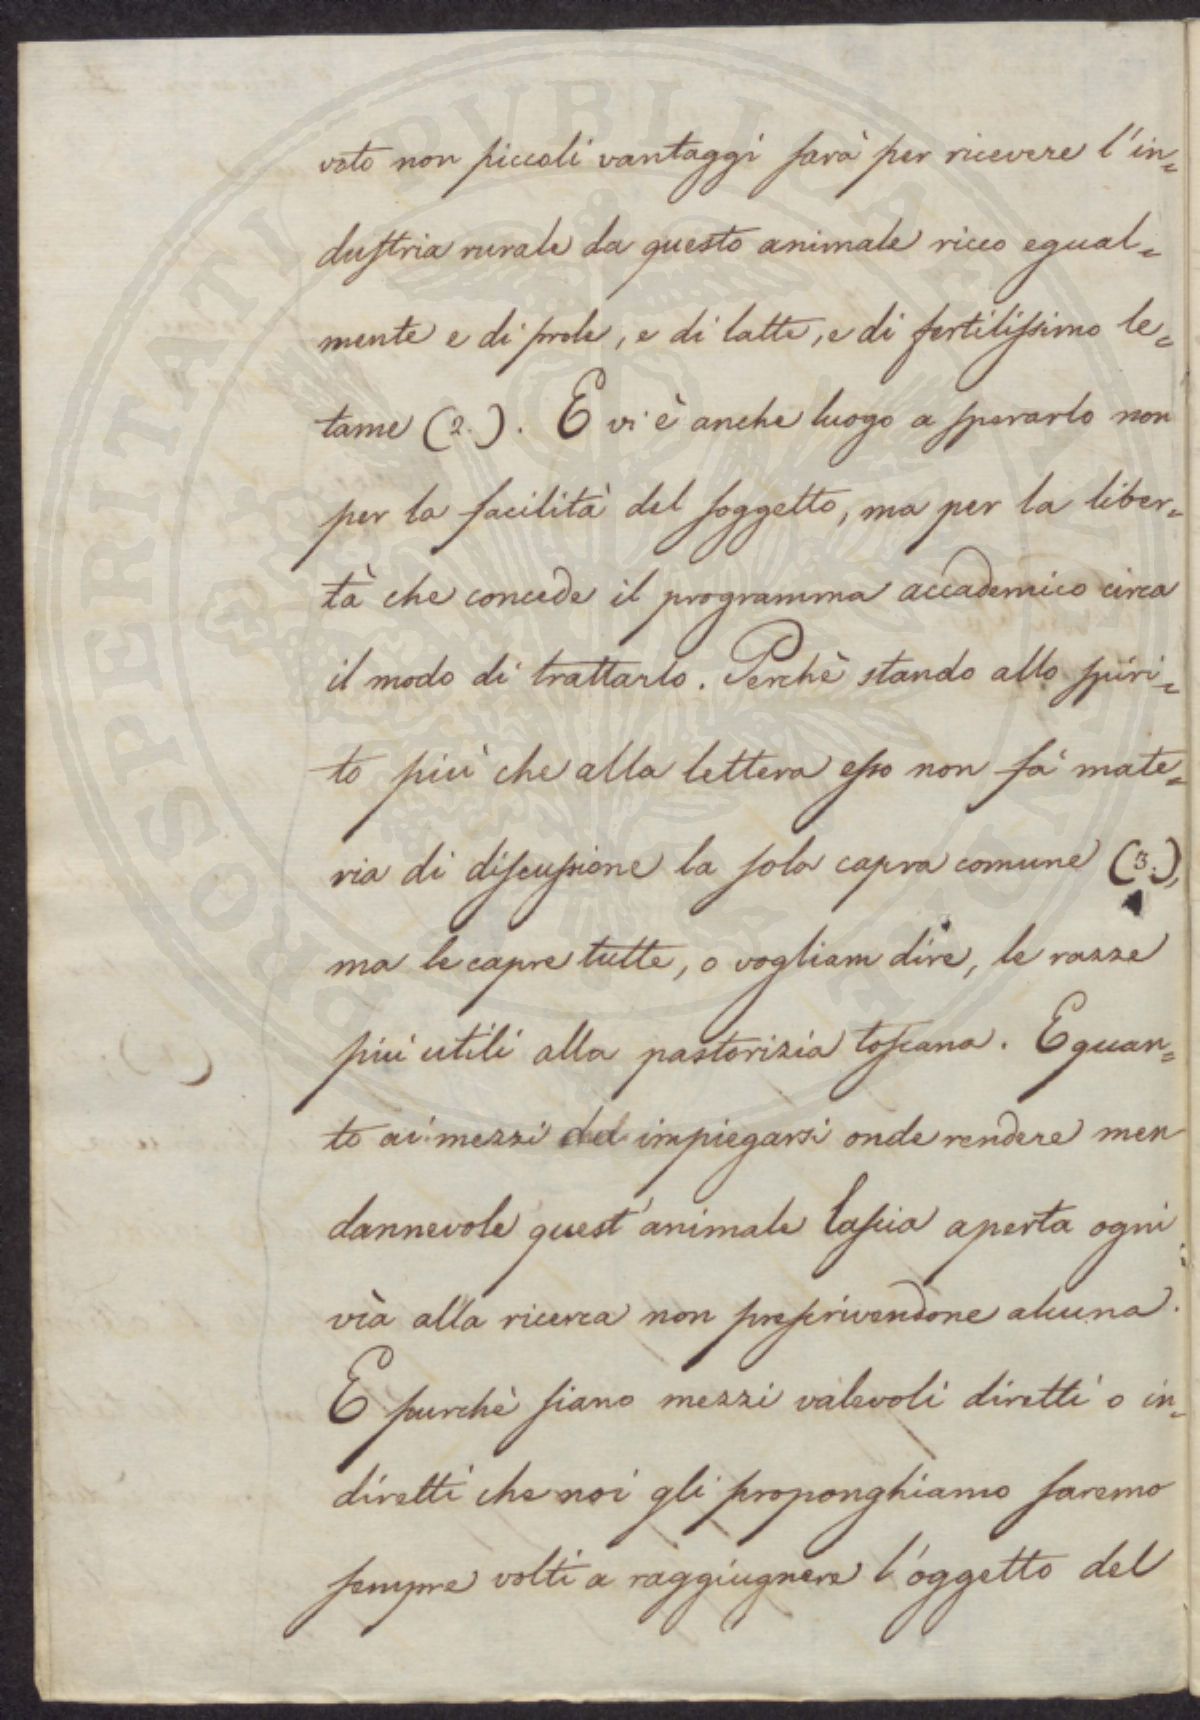 voto non piccoli vantaggi sarà per ricevere l'in=
dustria rurale da questo animale ricco egual=
mente e di prole, e di latte, e di fertilissimo le=
tame (2.). E vi è anche luogo a sperarlo non
per la facilità del soggetto, ma per la liber=
tà che concede il programma accademico circa
il modo di trattarlo. Perchè stando allo spiri=
to più che alla lettera esso non fà mate=
ria di discussione la sola capra comune (3.),
ma le capre tutte, o vogliam dire, le razze
più utili alla pastorizia toscana. E quan=
to ai mezzi impiegarsi onde rendere men
dannevole quest'animale lascia aperta ogni
via alla ricerca non prescrivendone alcuna.
E purchè siano mezzi valevoli diretti o in=
diretti che noi gli proponghiamo saremo
sempre volti a raggiugnere l'oggetto del
PROSPERITATI PUBLICAE